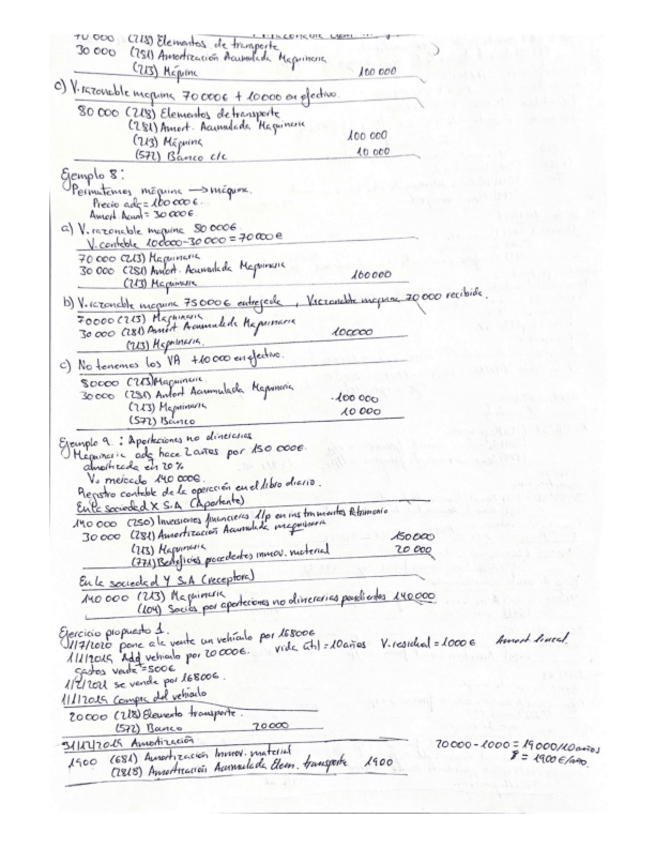 70 000 (218) Elementos de transporte
30 000 (281) Amortización Acumulada Maquinaria
(213) Máquina 100 000
c) V. razonable maquina 70 000€ + 10000 en efectivo.
80 000 (218) Elementos de transporte
(281) Amort. Acumulada Maquinaria
(213) Máquina 100 000
(572) Banco c/c 10 000
Ejemplo 8:
Permutamos máquina → máquina.
Precio adq = 100 000 €.
Amort Acum = 30 000 €.
a) V. razonable maquina 80 000€.
V. contable 100000-30 000 = 70 000 €
70 000 (213) Maquinaria
30 000 (281) Amort. Acumulada Maquinaria
(213) Maquinaria 100 000
b) V. razonable maquina 75 000 € entregada, V razonable maquina 70 000 recibida.
70000 (213) Maquinaria
30 000 (281) Amort Acumulada Maquinaria
(213) Maquinaria. 100000
c) No tenemos los VA + 10 000 en efectivo.
80000 (213) Maquinaria
30000 (281) Amort Acumulada Maquinaria
(213) Maquinaria 100 000
(572) Banco 10 000
Ejemplo 9.: Aportaciones no dinerarias
Maquinaria adq hace 2 años por 150 000€.
amortizada en 20%
V. mercado 140 000€.
Registro contable de la operación en el libro diario.
En la sociedad X S.A (Aportante)
140 000 (250) Inversiones financieras l/p en instrumentos Patrimonio
30 000 (281) Amortización Acumulada maquinaria
(213) Maquinaria 150 000
(771) Beneficios procedentes inmov. material 20 000
En la sociedad Y S.A (receptora)
140 000 (213) Maquinaria
(104) Socios por aportaciones no dinerarias pendientes 140 000
Ejercicio propuesto 1.
1/7/2020 pone a la venta un vehículo por 16800€
1/1/2019 Adq vehiculo por 20 000€. vida útil = 10 años V. residual = 1000 € Amort lineal.
gastos venta = 500€
1/2/2021 se vende por 16800€.
1/1/2019 Compra del vehiculo
20000 (218) Elemento transporte.
(572) Banco 20000
31/12/2019 Amortización
1900 (681) Amortización Inmov. material
(2818) Amortización Acumulada Elem. transporte 1900
20 000 - 1000 = 19 000/10 años
= 1900 €/año.